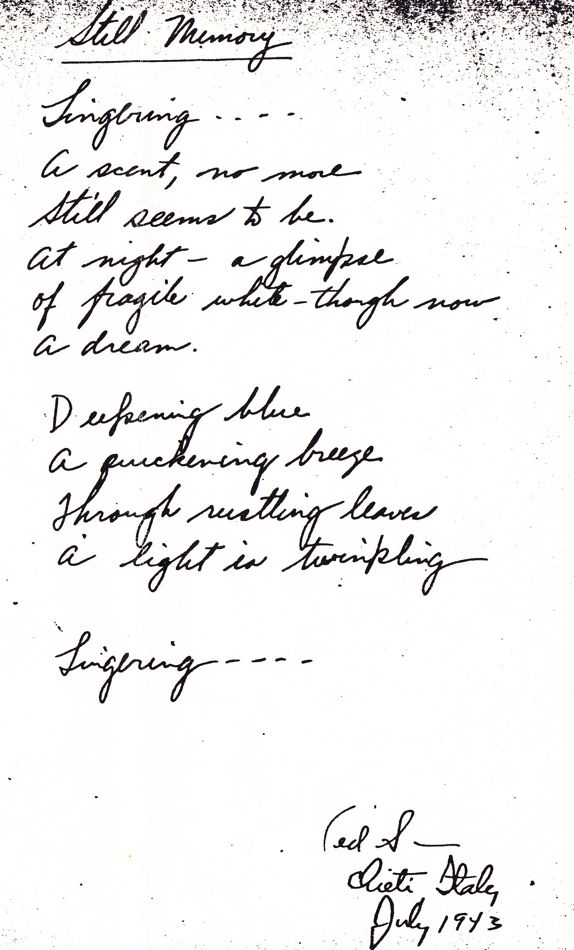 Still Memory
Lingering ----
A scent, no more
Still seems to be.
At night - a glimpse
of fragile white - though now
A dream.
Deepening blue
A quickening breeze
Through rustling leaves
A light is twinkling
Lingering ----
Ted S—
Chieti Italy
July 1943